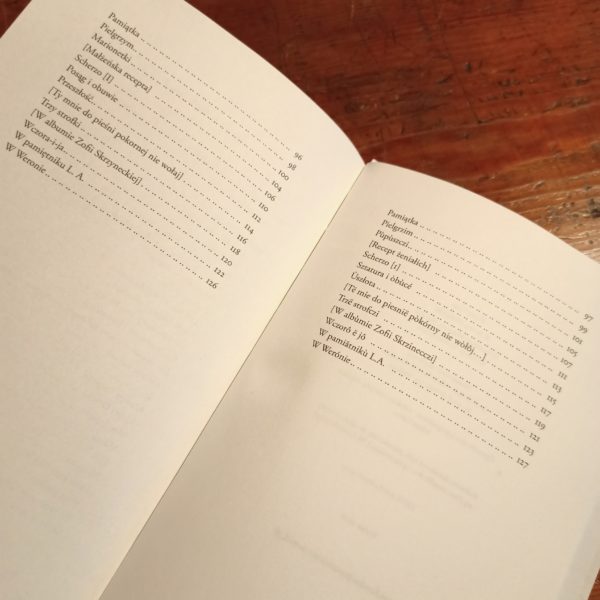 Pamiątka 96
Pielgrzym 98
Marionetki 100
[Małżeńska recepta] 104
Scherzo [I] 106
Posąg i obuwie 110
Przeszłość 112
[Ty mnie do pieśni pokornej nie wołaj] 114
Trzy strofki 116
[W albumie Zofii Skrzyneckiej] 118
Wczora-i-ja 120
W pamiętniku L. A. 122
W Weronie 126
Pamiątka 97
Pielgrzim 99
Pùpùszczi 101
[Recept żeniałich] 105
Scherzo [1] 107
Sztatura i òbùcé 111
Ùszłota 113
[Të mie do piesnié pòkórny nie wòłôj...] 115
Trzë strofczi 117
[W albùmie Zofii Skrzinecczi] 119
Wczorô ë jô 121
W pamiãtnikù L.A. 123
W Werónie 127